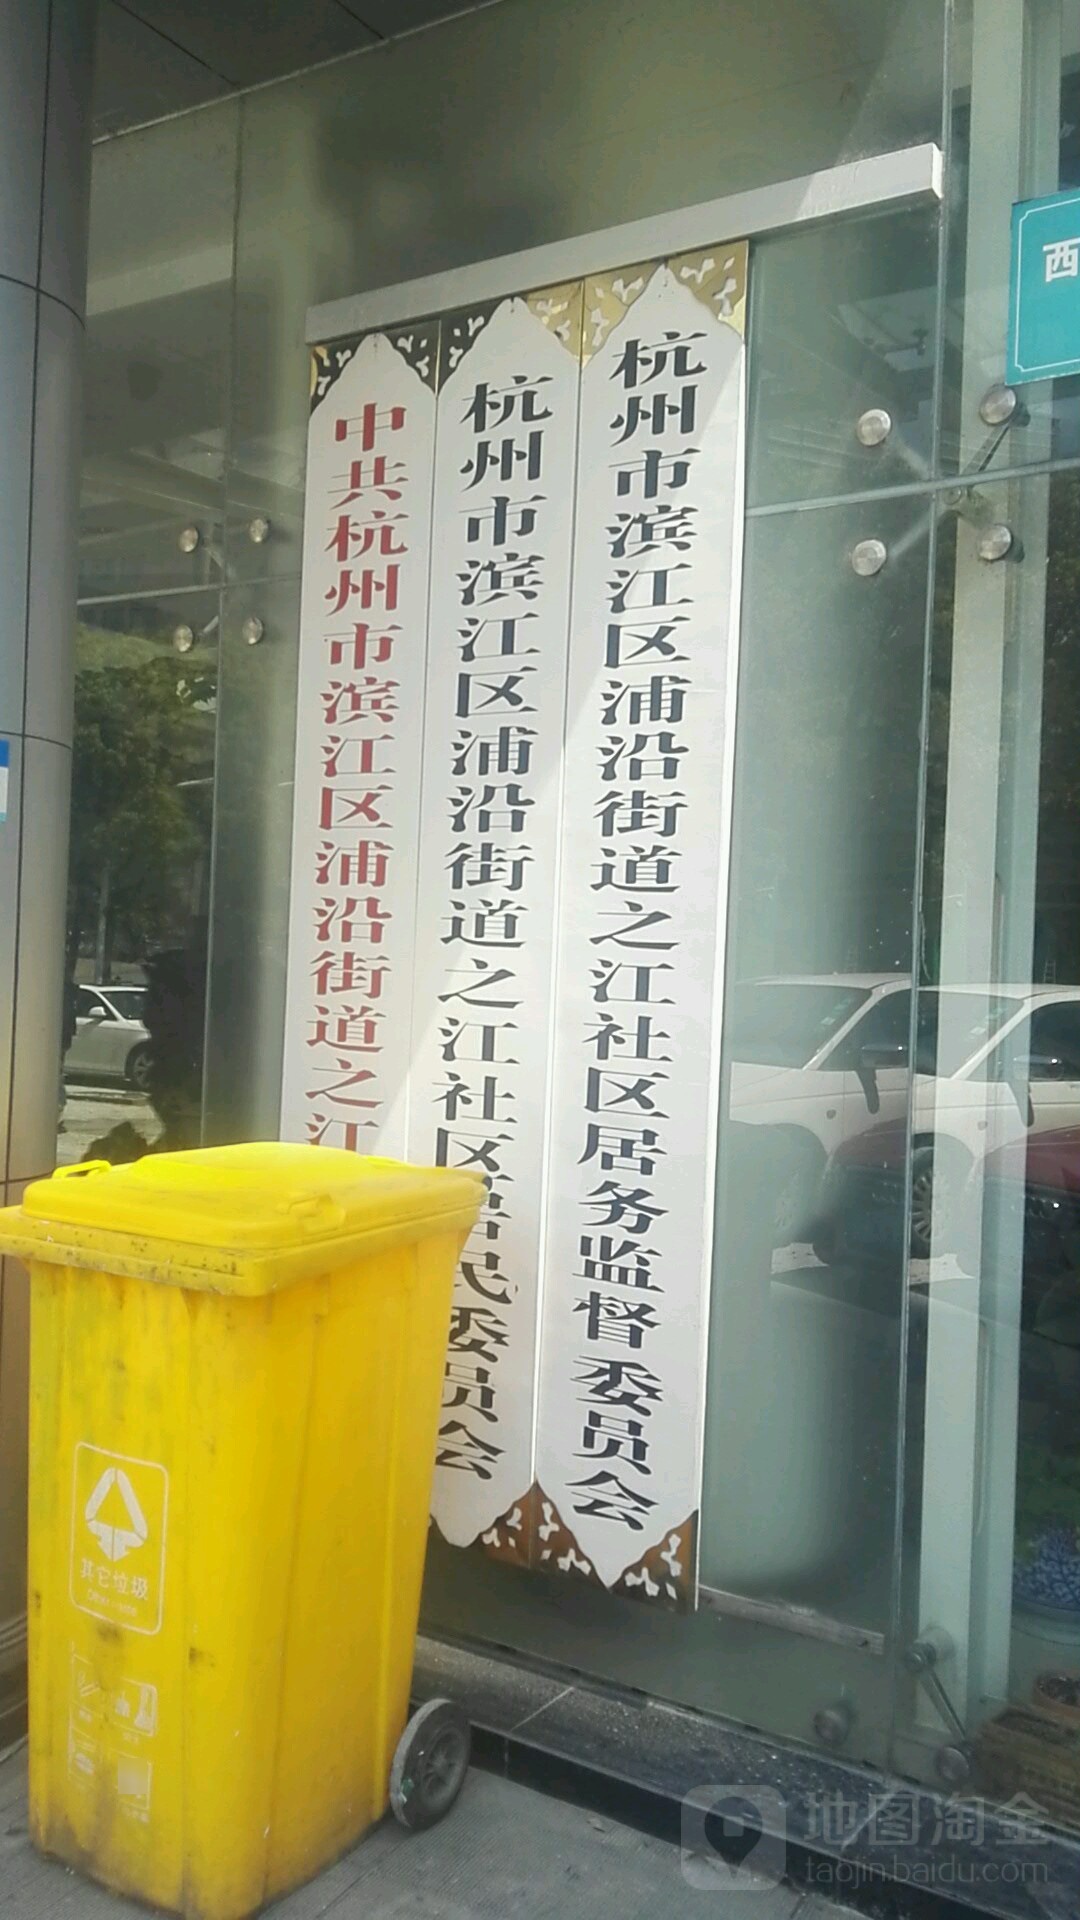 中共杭州市滨江区浦沿街道之江
杭州市滨江区浦沿街道之江社区居民委员会
杭州市滨江区浦沿街道之江社区居务监督委员会
西
其它垃圾
地图淘金
taojin.baidu.com